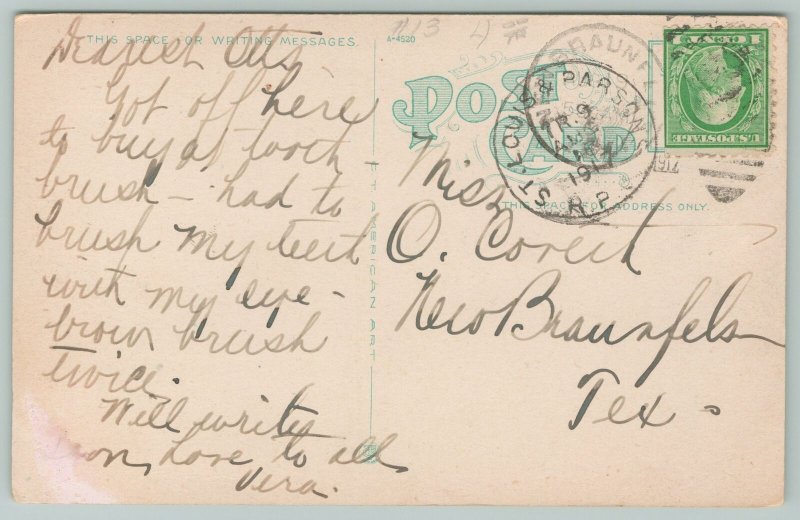 THIS SPACE FOR WRITING MESSAGES
A-4520
Dearest Otts
Got off here
to buy a tooth
brush – had to
brush my teeth
with my eye-
brow brush
twice.
Will write
soon, love to all
Vera.
AMERICAN ART
POST CARD
THIS SPACE FOR ADDRESS ONLY.
ST. LOUIS & PARSONS
1917
R.P.O.
BRAUNFELS
U.S. POSTAGE
1 CENT 1
Miss
O. Coreth
New Braunfels
Tex –